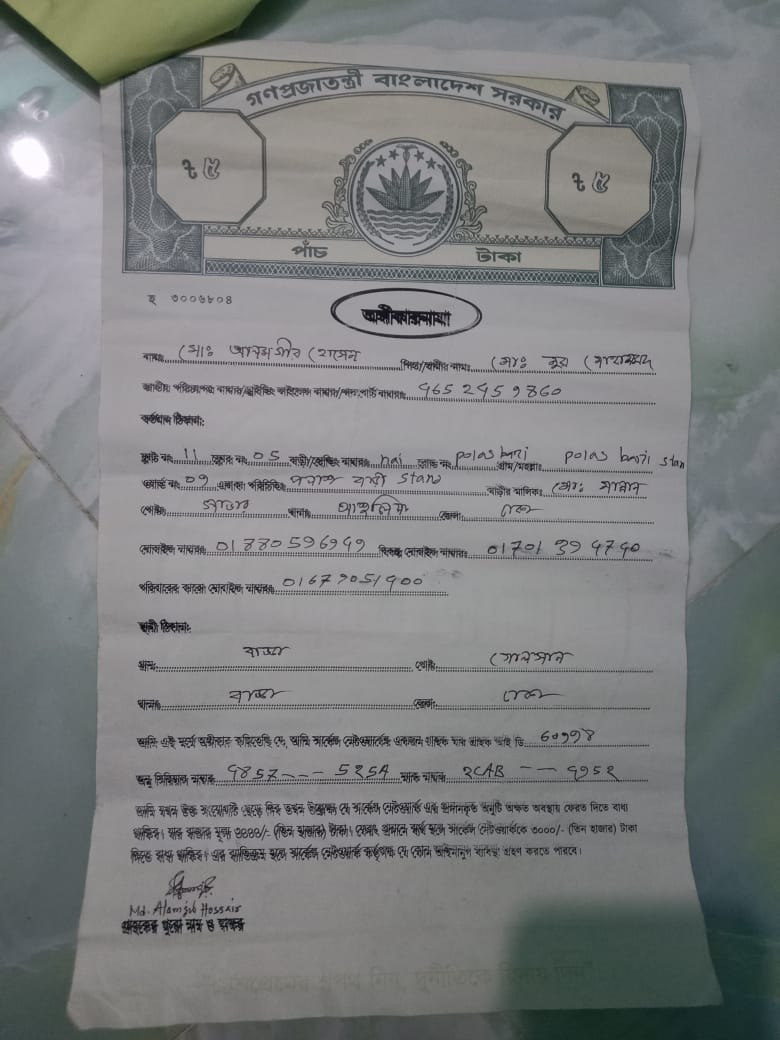 গণপ্রজাতন্ত্রী বাংলাদেশ সরকার
৳ ৫ ৳ ৫
পাঁচ টাকা
হ ৩০০৬৮০৪
অঙ্গীকারনামা
নামঃ মোঃ আলমগীর হোসেন পিতা/স্বামীর নামঃ মোঃ নুর মোহাম্মদ
জাতীয় পরিচয়পত্র নাম্বার/ড্রাইভিং লাইসেন্স নাম্বার/পাসপোর্ট নাম্বারঃ 9652459860
বর্তমান ঠিকানা:
ফ্ল্যাট নংঃ 11 ফ্লোর নংঃ 05 বাড়ী/হোল্ডিং নাম্বারঃ nai রোড নংঃ polas bari গ্রাম/মহল্লাঃ polas bari stan
ওয়ার্ড নংঃ 09 এলাকা পরিচিতিঃ পলাশ বাড়ী stand বাড়ীর মালিকঃ মোঃ মান্নান
পোষ্টঃ সাভার থানাঃ আশুলিয়া জেলাঃ ঢাকা
মোবাইল নাম্বারঃ 01880596949 বিকল্প মোবাইল নাম্বারঃ 01701394740
পরিবারের কারো মোবাইল নাম্বারঃ 01679051900
স্থায়ী ঠিকানা:
গ্রামঃ বাড্ডা পোষ্টঃ গোলসান
থানাঃ বাড্ডা জেলাঃ ঢাকা
আমি এই মর্মে অঙ্গীকার করিতেছি যে, আমি সার্কেল নেটওয়ার্কের একজন গ্রাহক যার গ্রাহক আই ডি 60998
অনু সিরিয়াল নাম্বার 4857--- 525A ম্যাক নাম্বার 2CAB -- 9952
আমি যখন উক্ত সংযোগটি ছেড়ে দিব তখন উল্লেখ্য যে সার্কেল নেটওয়ার্ক এর প্রদানকৃত অনুটি অক্ষত অবস্থায় ফেরত দিতে বাধ্য
থাকিব। যার বাজার মূল্য ৩০০০/- (তিন হাজার) টাকা। ফেরত প্রদানে ব্যর্থ হলে সার্কেল নেটওয়ার্ককে ৩০০০/- (তিন হাজার) টাকা
দিতে বাধ্য থাকিব। এর ব্যতিক্রম হলে সার্কেল নেটওয়ার্ক কর্তৃপক্ষ যে কোন আইনানুগ ব্যবস্থা গ্রহণ করতে পারবে।
Md. Alamgir Hossain
গ্রাহকের পুরো নাম ও স্বাক্ষর
"দেশপ্রেমের শপথ নিন, দুর্নীতিকে বিদায় দিন"